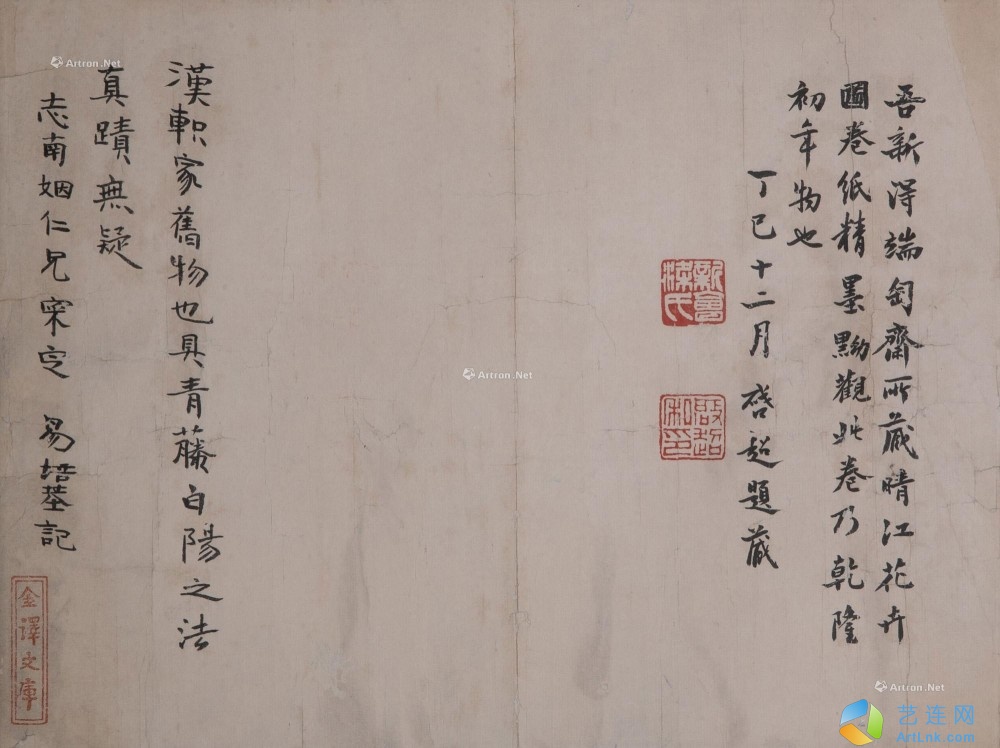 吾新得端匋齋所藏晴江花卉
圖卷紙精墨黝觀此卷乃乾隆
初年物也
丁巳十二月 啓超題藏
新會梁氏
啟超私印
漢軹家舊物也具青藤白陽之法
真蹟無疑
志南姻仁兄宷定 易培基記
金譯文庫
Artron.Net
Artron.Net
Artron.Net
Artron.Net
艺连网
ArtLnk.com